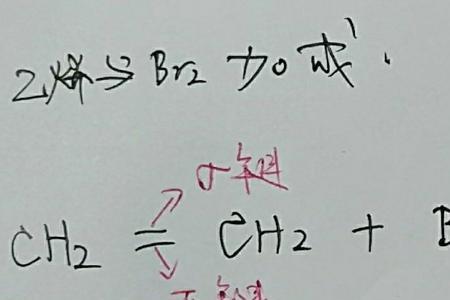 乙烯与Br2 加成.
σ-键
CH2 = CH2 + B
π-键